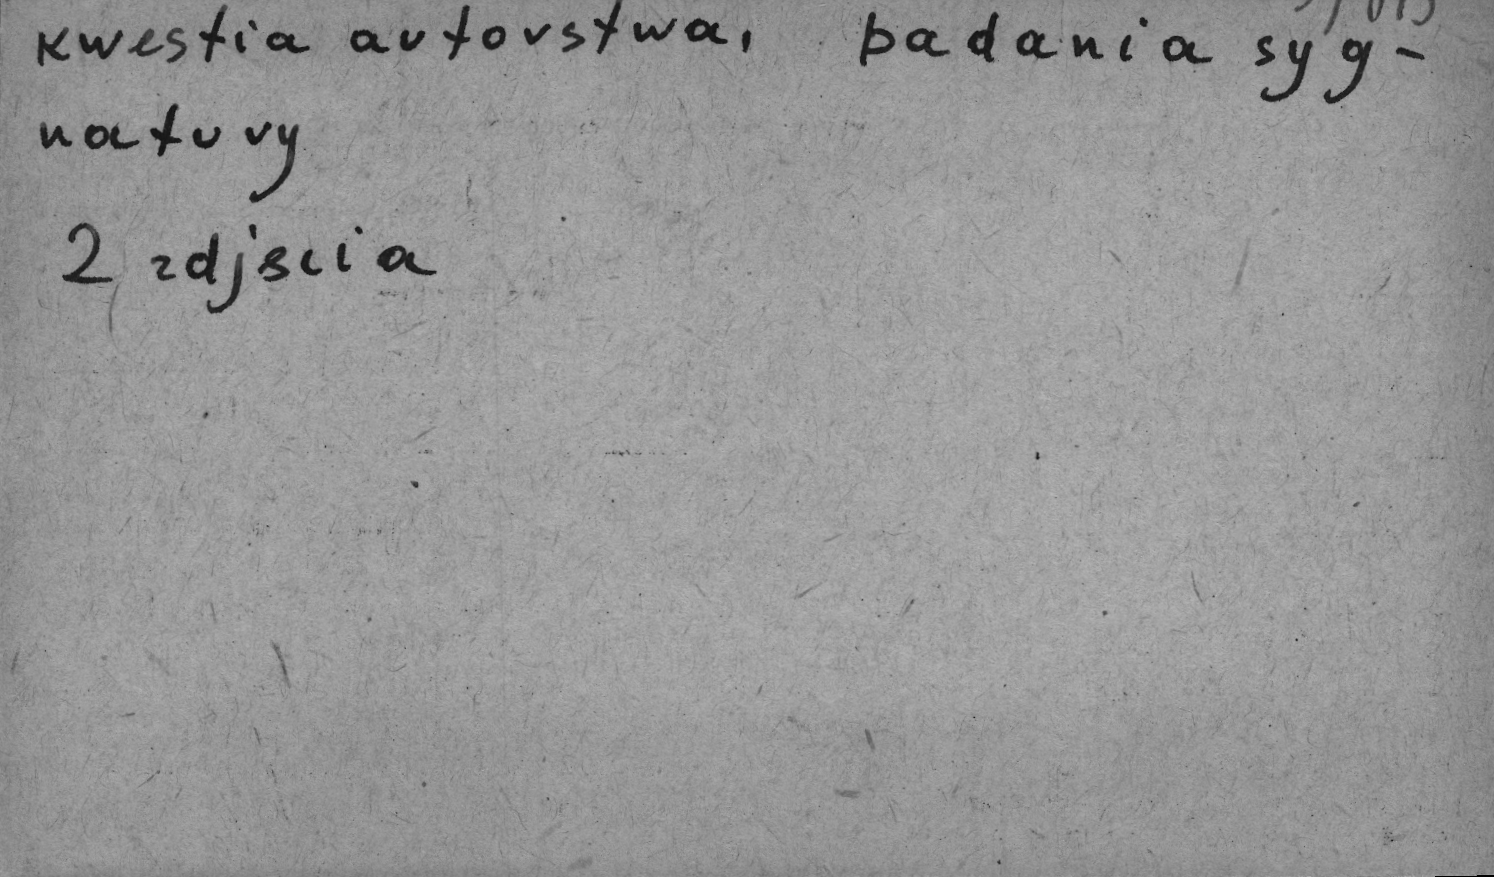 kwestia autorstwa, badania syg-
natury
2 zdjścia